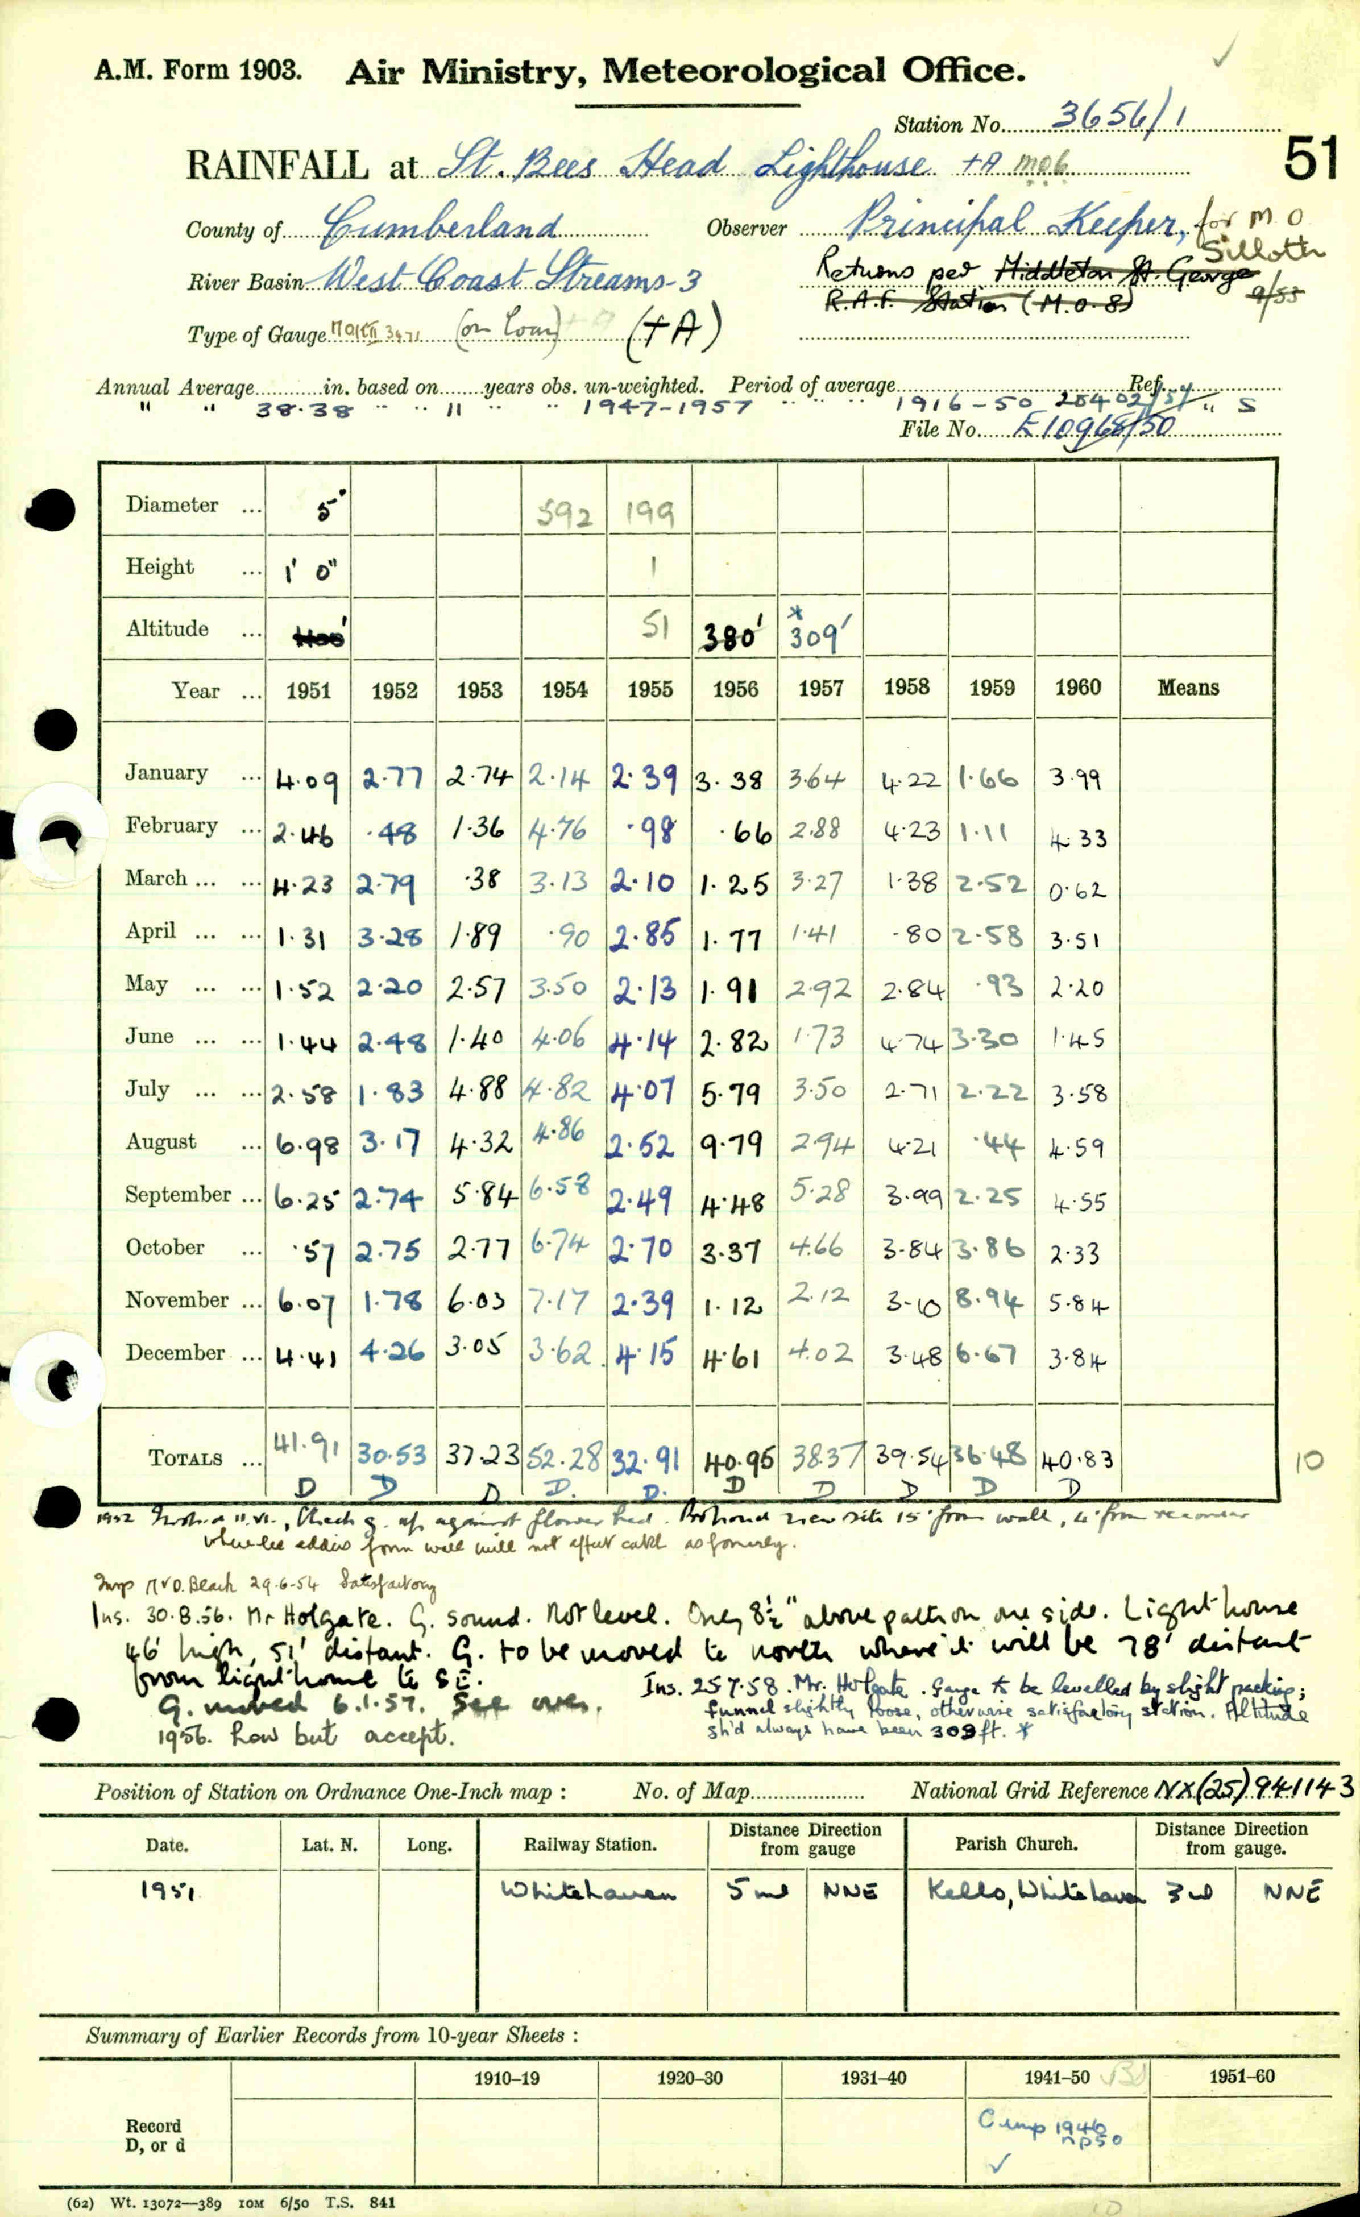 A.M. Form 1903. Air Ministry, Meteorological Office.
Station No. 3656/1
51
RAINFALL at St. Bees Head Lighthouse +A m.o.6
County of Cumberland Observer Principal Keeper, for M O Silloth
River Basin West Coast Streams-3 Returns per Middleton St. George 9/53
R.A.F. Station (M.O.8)
Type of Gauge (on loan) +A (+A)
Annual Average in. based on years obs. un-weighted. Period of average Ref.
" " 38.38 " " 11 " " " 1947-1957 " " " 1916-50 " S
File No. E10968/50
Diameter ... 5" 592 199
Height ... 1' 0" 1
Altitude ... 400' 51 380' * 309'
Year ... 1951 1952 1953 1954 1955 1956 1957 1958 1959 1960 Means
January ... 4.09 2.77 2.74 2.14 2.39 3.38 3.64 4.22 1.66 3.99
February ... 2.46 .48 1.36 4.76 .98 .66 2.88 4.23 1.11 4.33
March ... ... 4.23 2.79 .38 3.13 2.10 1.25 3.27 1.38 2.52 0.62
April ... ... 1.31 3.28 1.89 .90 2.85 1.77 1.41 .80 2.58 3.51
May ... ... 1.52 2.20 2.57 3.50 2.13 1.91 2.92 2.84 .93 2.20
June ... ... 1.44 2.48 1.40 4.06 4.14 2.82 1.73 4.74 3.30 1.45
July ... ... 2.58 1.83 4.88 4.82 4.07 5.79 3.50 2.71 2.22 3.58
August ... 6.98 3.17 4.32 4.86 2.52 9.79 2.94 4.21 .44 4.59
September ... 6.25 2.74 5.84 6.58 2.49 4.48 5.28 3.99 2.25 4.55
October ... .57 2.75 2.77 6.74 2.70 3.37 4.66 3.84 3.86 2.33
November ... 6.07 1.78 6.03 7.17 2.39 1.12 2.12 3.10 8.94 5.84
December ... 4.41 4.26 3.05 3.62 4.15 4.61 4.02 3.48 6.67 3.84
TOTALS ... 41.91 30.53 37.23 52.28 32.91 40.95 38.37 39.54 36.48 40.83 10
D D D D. D. D D D D D
1952 Check g. up against flower bed. Proposed new site 15' from wall, 4' from recorder
where eddies from wall will not affect catch as formerly.
Insp Beach 29-6-54 Satisfactory
Ins. 30.8.56. Mr Holgate. G. sound. Not level. Only 8½" above path on one side. Lighthouse
46' high, 51' distant. G. to be moved to north where it will be 78' distant
from lighthouse to SE.
G. moved 6.1.57. See over.
1956. Low but accept.
Ins. 25.7.58. Mr. Holgate. Gauge to be levelled by slight packing;
funnel slightly loose, otherwise satisfactory station. Altitude
sh'd always have been 309 ft. *
Position of Station on Ordnance One-Inch map : No. of Map National Grid Reference NX(25)941143
Date. Lat. N. Long. Railway Station. Distance from gauge Direction Parish Church. Distance from gauge. Direction
1951 Whitehaven 5 ml NNE Kells, Whitehaven 3 ml NNE
Summary of Earlier Records from 10-year Sheets :
1910–19 1920–30 1931–40 1941–50 1951–60
Record
D, or d
Comp 1946
(62) Wt. 13072—389 10M 6/50 T.S. 841
10